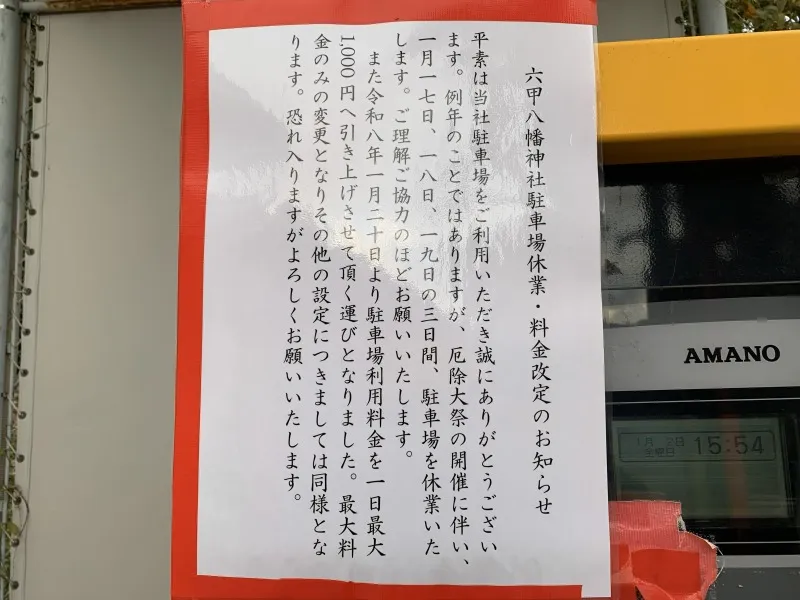 六甲八幡神社駐車場休業・料金改定のお知らせ
平素は当社駐車場をご利用いただき誠にありがとうござい
ます。例年のことではありますが、厄除大祭の開催に伴い、
一月一七日、一八日、一九日の三日間、駐車場を休業いた
します。ご理解ご協力のほどお願いいたします。
また令和八年一月二十日より駐車場利用料金を一日最大
1,000円へ引き上げさせて頂く運びとなりました。最大料
金のみの変更となりその他の設定につきましては同様とな
ります。恐れ入りますがよろしくお願いいたします。
AMANO
1月 2日
金曜日
15:54